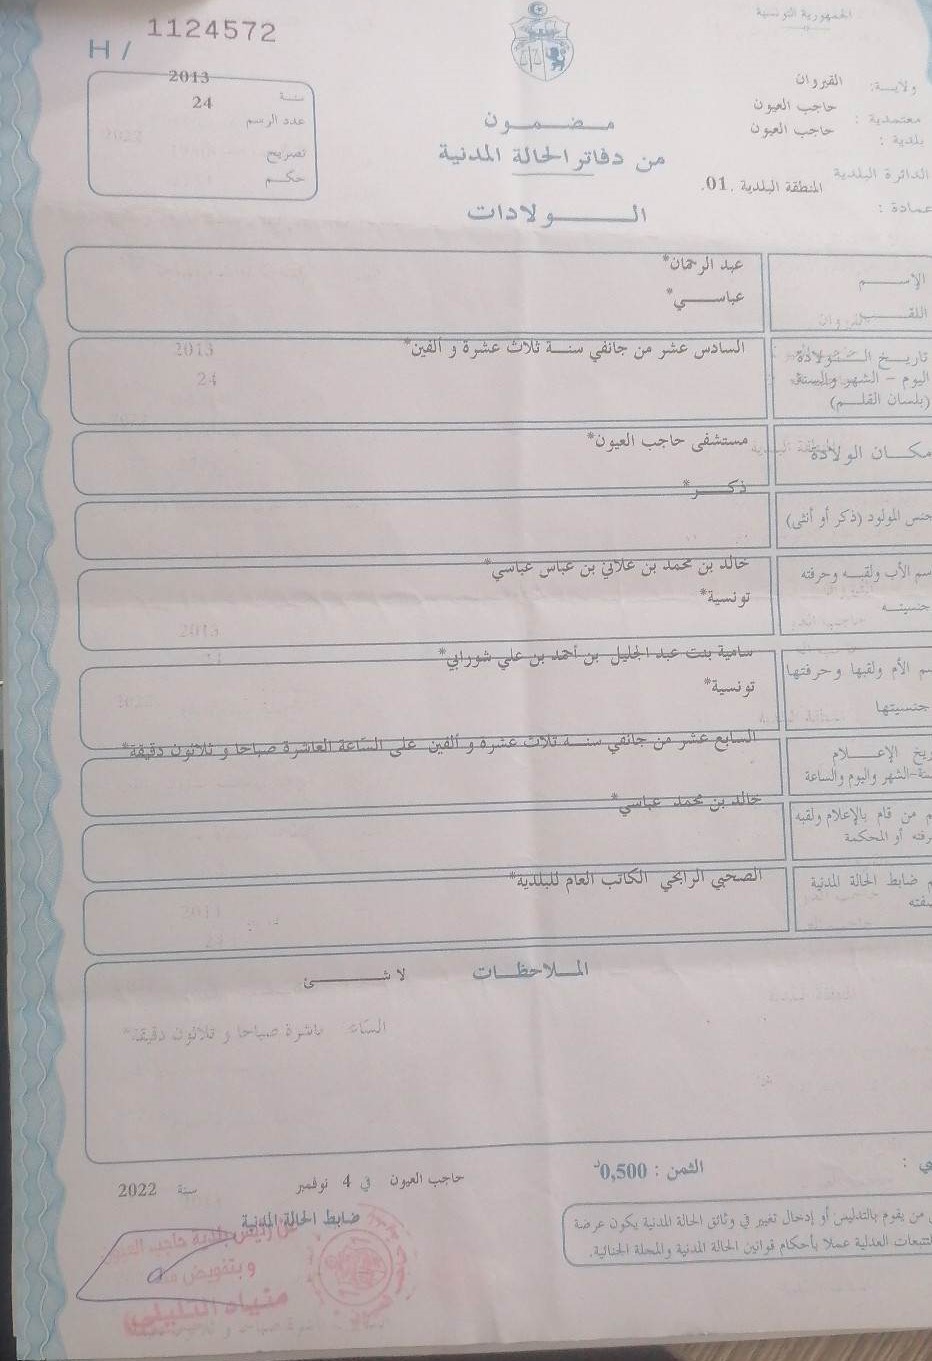 الجمهورية التونسية
H / 1124572
ولاية: القيروان
معتمدية : حاجب العيون
بلدية : حاجب العيون
الدائرة البلدية المنطقة البلدية .01.
عمادة :
سنة 2013
عدد الرسم 24
تصريح
حكم
مضمون
من دفاتر الحالة المدنية
الولادات
الإسم عبد الرحمان*
اللقب عباسي*
تاريخ الولادة السادس عشر من جانفي سنة ثلاث عشرة و ألفين*
اليوم - الشهر والسنة
(بلسان القلم)
مكان الولادة مستشفى حاجب العيون*
ذكر*
جنس المولود (ذكر أو أنثى)
سم الأب ولقبه وحرفته خالد بن محمد بن علاني بن عباس عباسي*
جنسيته تونسية*
سم الأم ولقبها وحرفتها سامية بنت عبد الجليل بن أحمد بن علي شورابي*
جنسيتها تونسية*
السابع عشر من جانفي سنة ثلاث عشرة و ألفين على الساعة العاشرة صباحا و ثلاثون دقيقة*
ريخ الإعلام
سنة-الشهر واليوم والساعة
خالد بن محمد عباسي*
م من قام بالإعلام ولقبه
رفته أو المحكمة
م ضابط الحالة المدنية الصحبي الرابحي الكاتب العام للبلدية*
صفته
الملاحظات لا شئ
الساعة العاشرة صباحا و ثلاثون دقيقة*
ي : الثمن : 0,500د
حاجب العيون في 4 نوفمبر سنة 2022
ضابط الحالة المدنية
عن رئيس بلدية حاجب العيون
و بتفويض منه
من يقوم بالتدليس أو إدخال تغيير في وثائق الحالة المدنية يكون عرضة
للتتبعات العدلية عملا بأحكام قوانين الحالة المدنية والمجلة الجنائية.